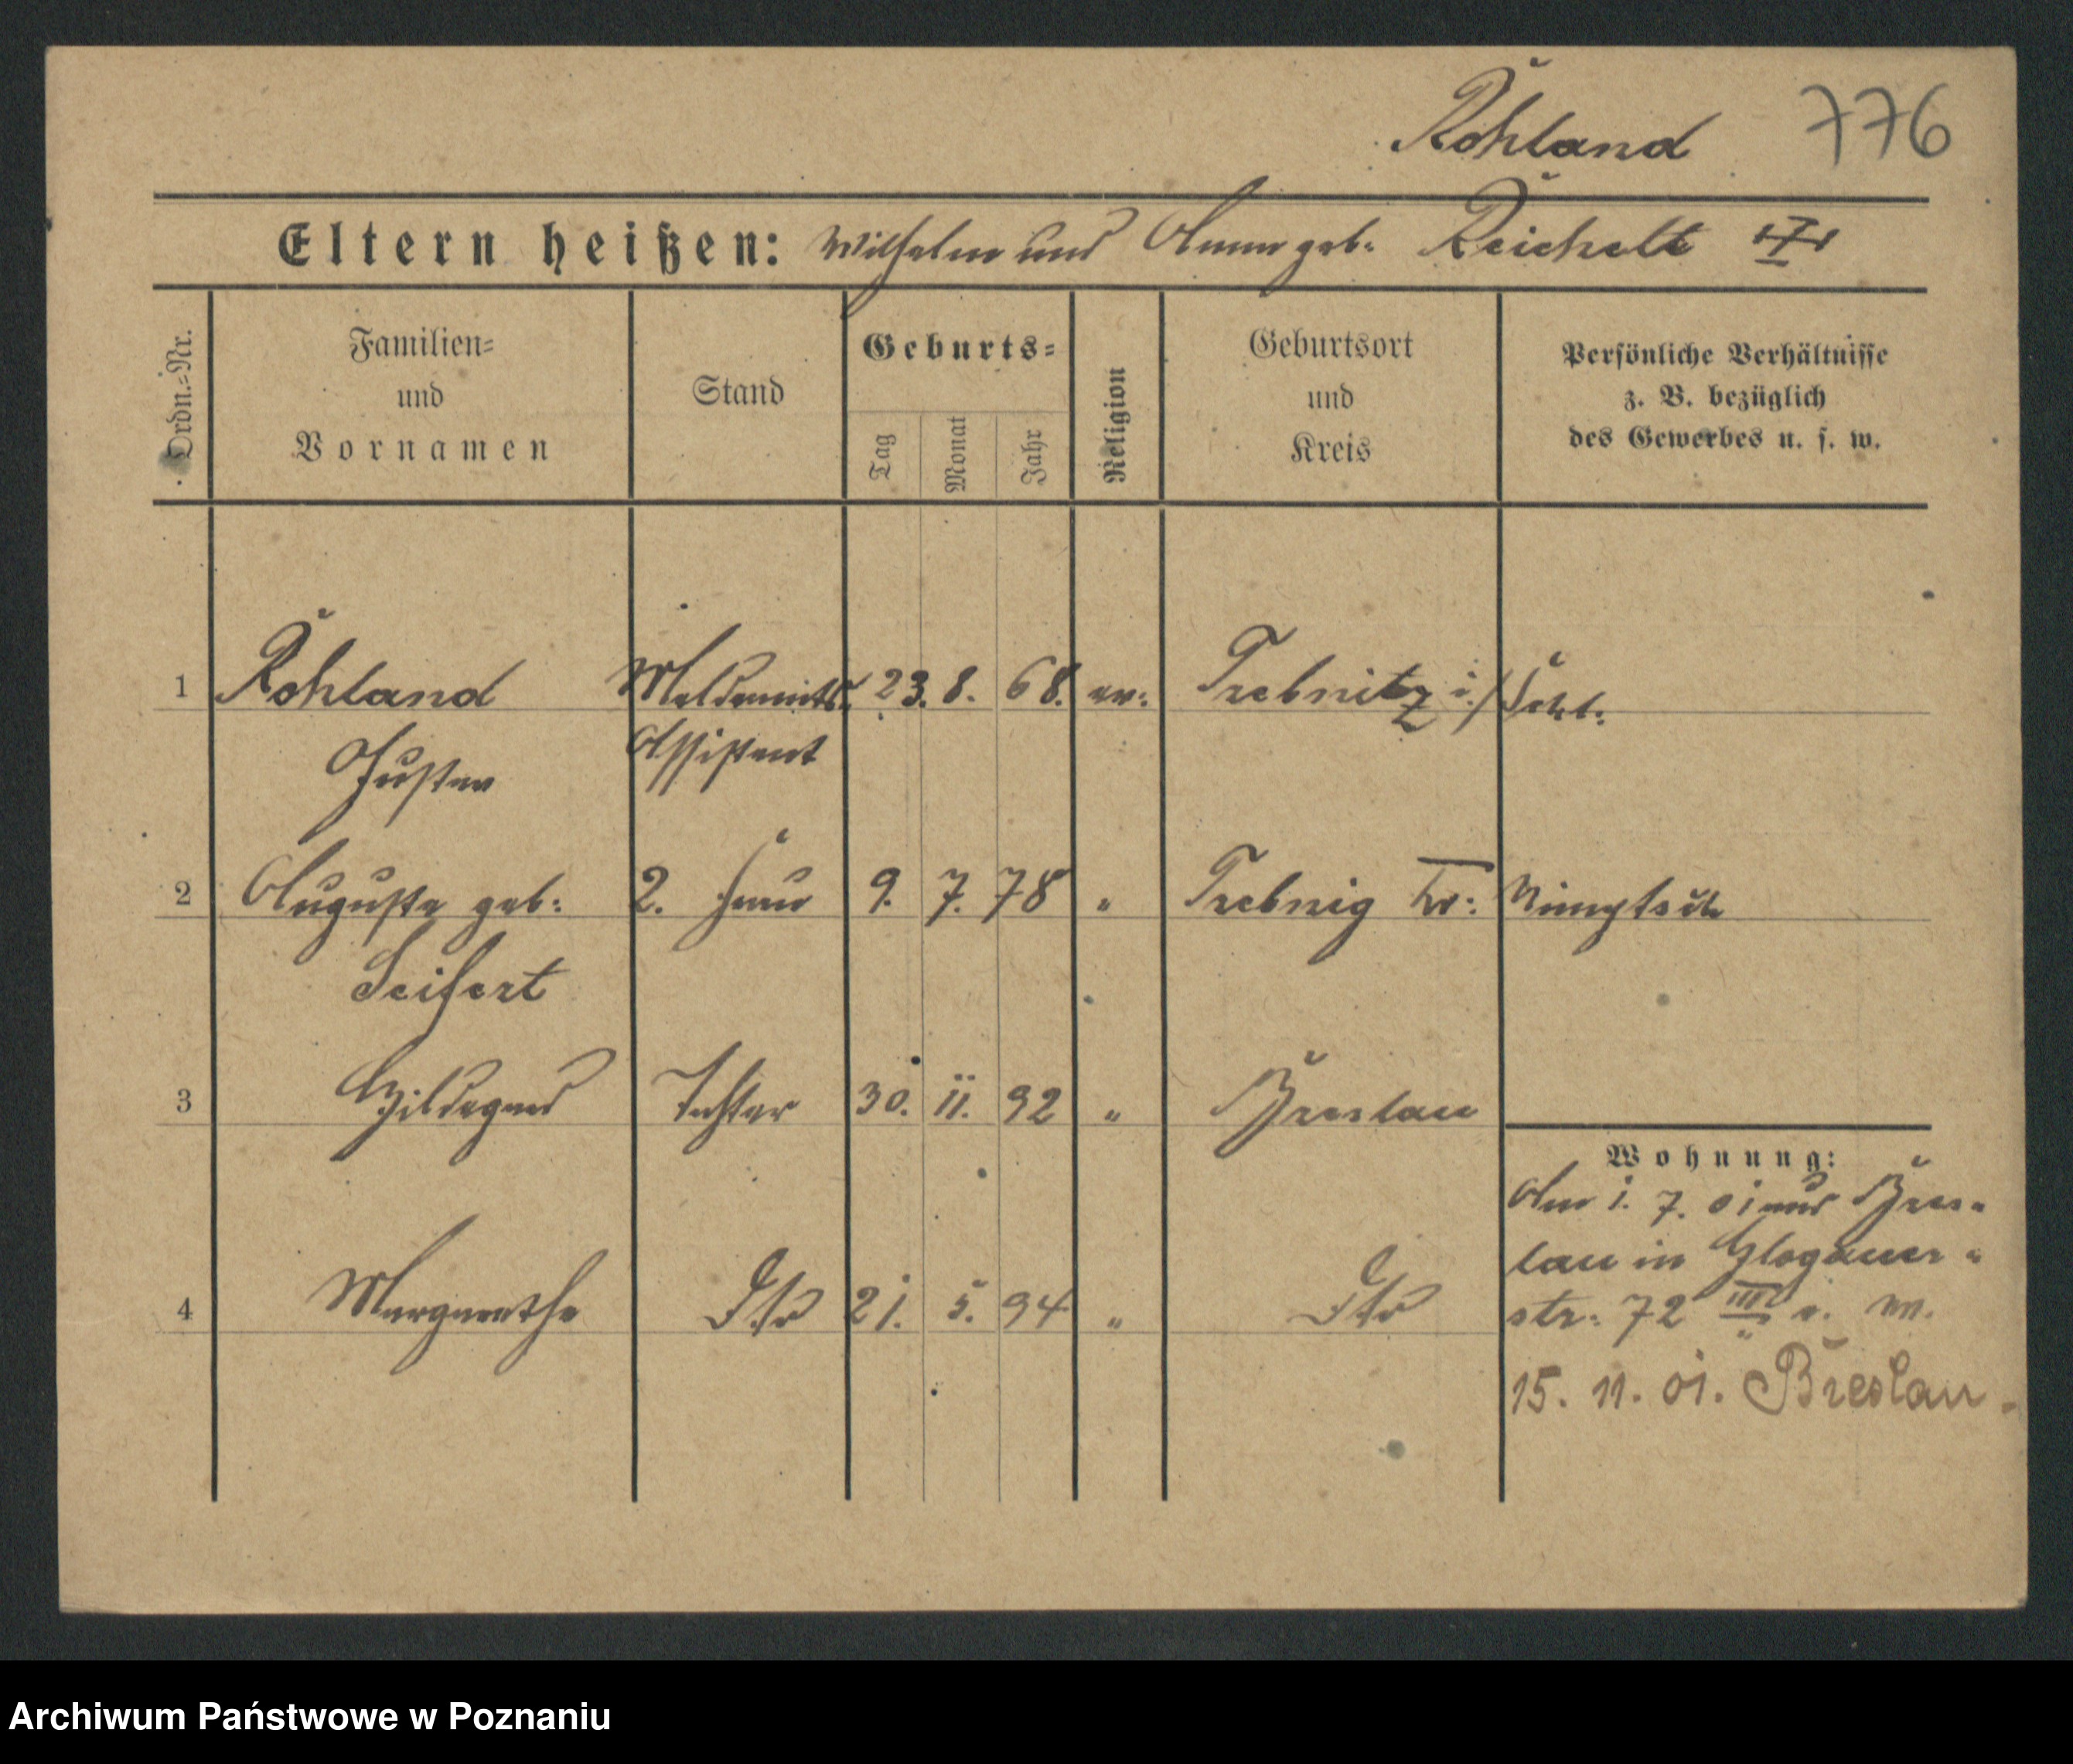 Rohland 776
Eltern heißen: Wilhelm und Anna geb. Reichelt
Ordn.=Nr.
Familien=
und
Vornamen
Stand
Geburts=
Tag
Monat
Jahr
Religion
Geburtsort
und
Kreis
Persönliche Verhältnisse
z. B. bezüglich
des Gewerbes u. s. w.
1 Rohland Meldeamts 23. 8. 68. ev. Trebnitz i./Schl.
Gustav Assistent
2 Auguste geb: 2. Frau 9. 7. 78 " Trebnig Kr: Nimptsch
Seifert
3 Hildegard Tochter 30. 11. 92 " Breslau
4 Margarethe Dto 21. 5. 94 " Dto
Wohnung:
Am 1. 7. 01 aus Bres-
lau in Glogauer-
str: 72 III
15. 11. 01. Breslau.
Archiwum Państwowe w Poznaniu